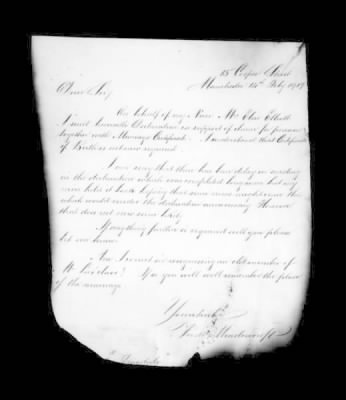 Manchester 14th July
Dear Sir,
On behalf of my Niece Mrs Elliott
I send herewith Declaration in support of claim for pension
together with Marriage Certificate. I understand that Certificate
of Birth is not now required.
I am sorry that there has been delay in sending
in the declaration which was completed long since but my
niece held it back hoping that some news would come thro
which would render the declaration unnecessary. However
that does not now seem likely.
If anything further is required will you please
let me know.
Am I correct in recognising an old member of
St. class? If so you will well remember the
of the marriage.
Yours truly